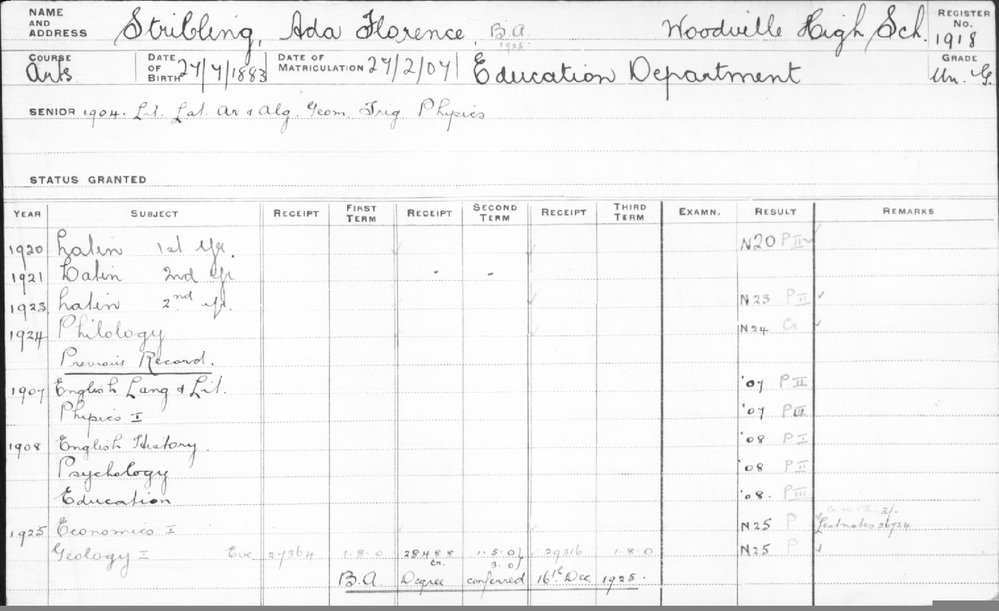 NAME AND ADDRESS Stribling, Ada Florence. B.A. 1925 Woodville High Sch. REGISTER No. 1918
COURSE Arts DATE OF BIRTH 27/7/1883 DATE OF MATRICULATION 27/2/07 Education Department GRADE Un. G.
SENIOR 1904. Lit. Lat. Ar & Alg. Geom. Trig Physics
STATUS GRANTED
YEAR SUBJECT RECEIPT FIRST TERM RECEIPT SECOND TERM RECEIPT THIRD TERM EXAMN. RESULT REMARKS
1920 Latin 1st Yr. N20 P II
1921 Latin 2nd Yr
1923 Latin 2nd Yr. N23 P II ✓
1924 Philology N24 C ✓
Previous Record.
1907 English Lang & Lit. '07 P II
Physics I '07 P III
1908 English History. '08 P I
Psychology '08 P II
Education '08. P III
1925 Economics I N25 P Lectnotes 26724
Geology I Eve. 27364 1.8.0 28488 1.5.0 29316 1.8.0 N25 P ✓
B.A. Degree conferred 16th Dec. 1925.